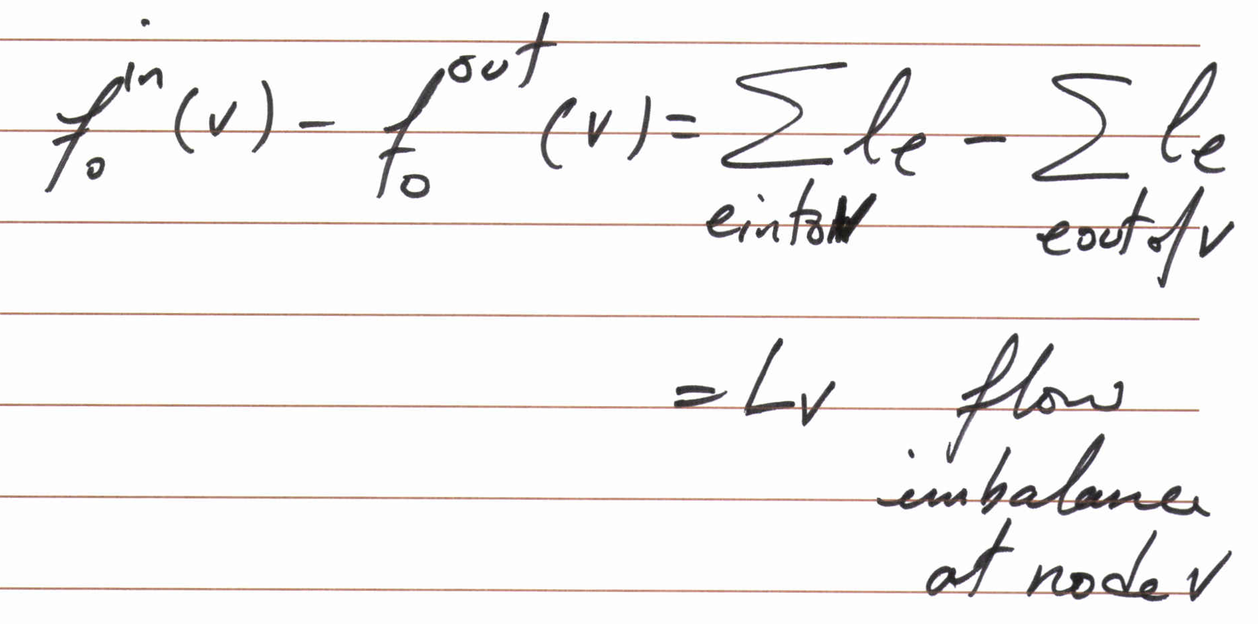 f₀ⁱⁿ(v) - f₀ᵒᵘᵗ(v) = ∑ lₑ - ∑ lₑ
e into v e out of v
= Lᵥ flow
imbalance
at node v